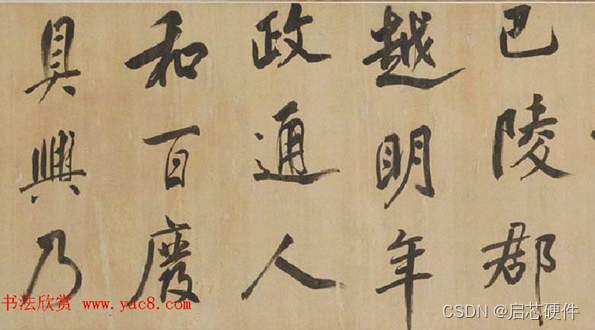 巴陵郡
越明年
政通人
和百廢
具興乃
书法欣赏 www.yac8.com
CSDN @启芯硬件